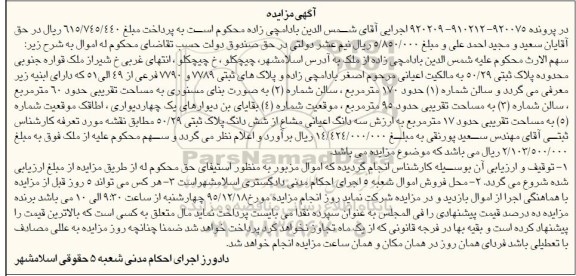 آگهی مزایده
در پرونده ۹۲۰۰۷۵-۹۱۰۲۱۲-۹۲۰۲۰۹ اجرایی آقای شمس الدین بادامچی زاده محکوم است به پرداخت مبلغ ۶۱۵/۷۴۵/۴۴۰ ریال در حق
آقایان سعید و مجید احمد علی و مبلغ ۵/۸۵۰/۰۰۰ ریال نیم عشر دولتی در حق صندوق دولت حسب تقاضای محکوم له اموال به شرح زیر:
سهم الارث محکوم علیه شمس الدین بادامچی زاده از ملک به آدرس اسلامشهر، چیچکلو، خ چیچکلو، انتهای غربی خ شیراز ملک قواره جنوبی
محدوده پلاک ثبتی ۵۰/۲۹ به مالکیت اعیانی مرحوم اصغر بادامچی زاده و پلاک های ثبتی ۷۷۸۹ و ۷۷۹۰ فرعی از ۴۹ الی ۵۱ که دارای ابنیه زیر
معرفی می گردد و سالن شماره (۱) حدود ۱۷۰ مترمربع، سالن شماره (۲) به صورت بنای مستوری به مساحت تقریبی حدود ۶۰ مترمربع
، سالن شماره (۳) به مساحت تقریبی حدود ۹۵ مترمربع، موقعیت شماره (۴) بقایای بن دیوارهای یک چهاردیواری، اطاقک موقعیت شماره
(۵) به مساحت تقریبی حدود ۱۷ مترمربع به ارزش سه دانگ اعیانی مشاع از شش دانگ پلاک ثبتی ۵۰/۲۹ مطابق نقشه مورد تعرفه کارشناس
ثبتی آقای مهندس سعید پورنقی به مبلغ ۱۴/۴۲۴/۰۰۰/۰۰۰ ریال برآورد و اعلام نظر می گردد و سهم محکوم علیه از ملک فوق به مبلغ
۲/۱۰۳/۵۰۰/۰۰۰ ریال می باشد که موضوع مزایده می باشد.
۱- توقیف و ارزیابی آن بوسیله کارشناس انجام گردیده که اموال مزبور به منظور استیفای حق محکوم له از طریق مزایده از مبلغ ارزیابی
شده شروع می گردد. ۲- محل فروش اموال شعبه ۵ اجرای احکام مدنی دادگستری اسلامشهر است ۳- هر کس می تواند ۵ روز قبل از مزایده
با هماهنگی اجرا از اموال بازدید و در مزایده شرکت نماید روز انجام مزایده مورخ ۹۵/۱۲/۱۸ چهارشنبه از ساعت ۹:۳۰ الی ۱۰ می باشد برنده
مزایده ده درصد قیمت پیشنهادی را فی المجلس به عنوان سپرده نقدا می بایست پرداخت نماید مال متعلق به کسی است که بالاترین قیمت را
پیشنهاد کرده است و بقیه بها در فرجه قانونی که از یک ماه تجاوز نخواهد کرد پرداخت خواهد شد ضمنا چنانچه روز مزایده به عللی مصادف
با تعطیلی باشد فردای همان روز در همان مکان و همان ساعت مزایده انجام خواهد شد.
دادورز اجرای احکام مدنی شعبه ۵ حقوقی اسلامشهر